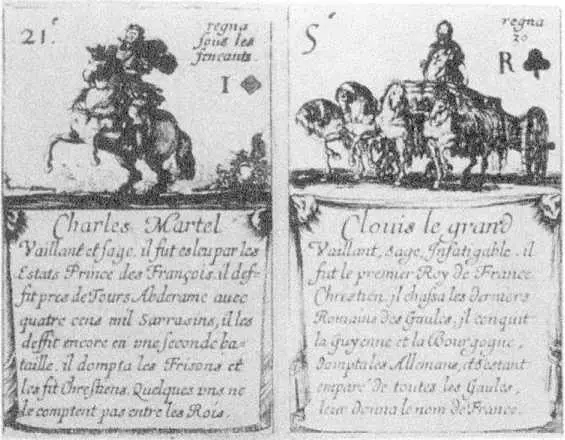 21.e
regna
sous les
feneants.
I
Charles Martel
Vaillant et sage, il fut esleu par les
Estats Prince des François. il def-
fit pres de Tours Abderame auec
quatre cens mil Sarrasins, il les
deffit encore en vne seconde ba-
taille. il dompta les Frisons et
les fit Chrestiens. Quelques vns ne
le comptent pas entre les Rois.
5e
regna
30
R
Clouis le grand
Vaillant, sage, Infatigable. il
fut le premier Roy de France
Chrestien. il chassa les derniers
Romains des Gaules, il conquit
la Guyenne et la Bourgogne,
dompta les Allemans, et s'estant
emparé de toutes les Gaules,
leur donna le nom de France.